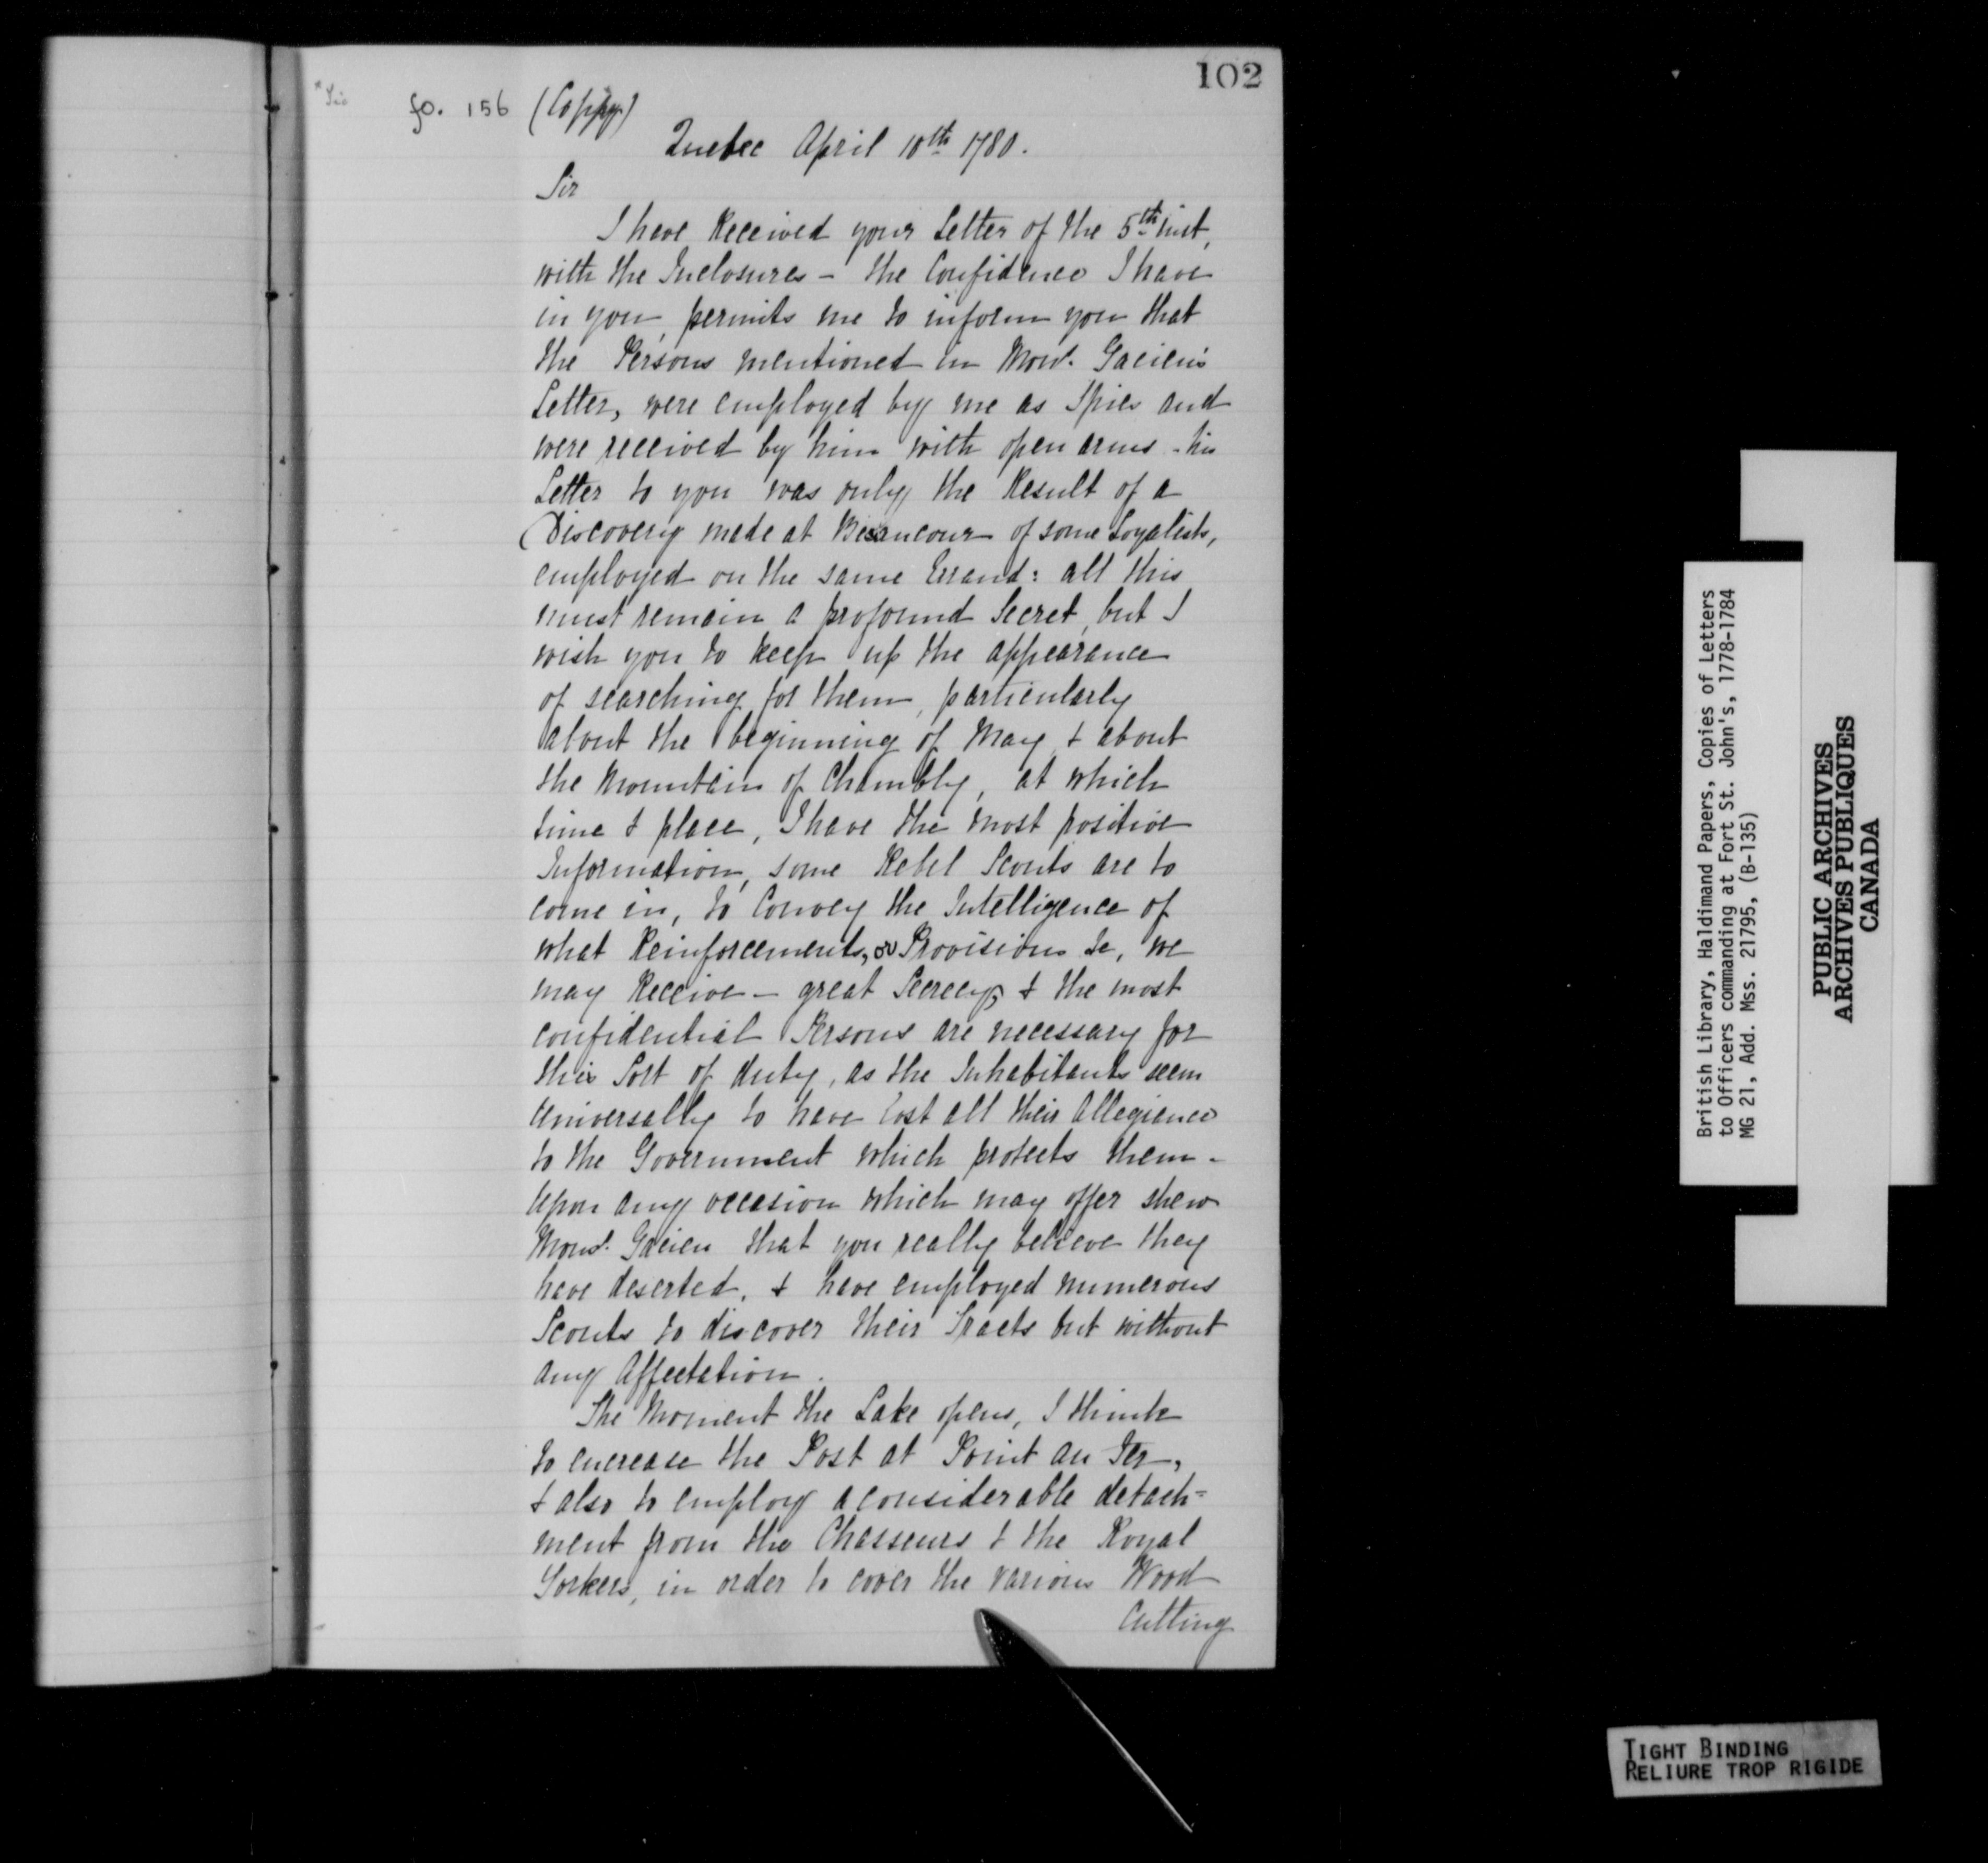 102
fo. 156 (Coppy)
Quebec April 10th 1780.
Sir
I have Received your Letter of the 5th inst,
with the Inclosures - the Confidence I have
in you, permits me to inform you that
the Persons mentioned in Monsr. Gacien's
Letter, were employed by me as Spies and
were received by him with open arms - his
Letter to you was only the Result of a
Discovery made at Becancour of some Loyalists,
employed on the same Errand: all this
must remain a profound Secret, but I
wish you to keep up the appearance
of searching for them, particularly
about the beginning of May, & about
the Mountain of Chambly, at which
time & place, I have the most positive
Information, some Rebel Scouts are to
come in, to Convey the Intelligence of
what Reinforcements, or Provisions &c, we
may Receive - great Secrecy, & the most
confidential Persons are necessary for
this Sort of duty, as the Inhabitants seem
Universally to have lost all their Allegience
to the Government which protects them -
Upon any occasion which may offer shew
Monsr. Gacien that you really believe they
have deserted, & have employed numerous
Scouts to discover their Tracts but without
any Affectation.
The Moment the Lake opens, I think
to encrease the Post at Point au Fer,
& also to employ a considerable detach=
ment from the Chasseurs & the Royal
Yorkers, in order to cover the various Wood
Cutting
British Library, Haldimand Papers, Copies of Letters
to Officers commanding at Fort St. John's, 1778-1784
MG 21, Add. Mss. 21795, (B-135)
PUBLIC ARCHIVES
ARCHIVES PUBLIQUES
CANADA
TIGHT BINDING
RELIURE TROP RIGIDE